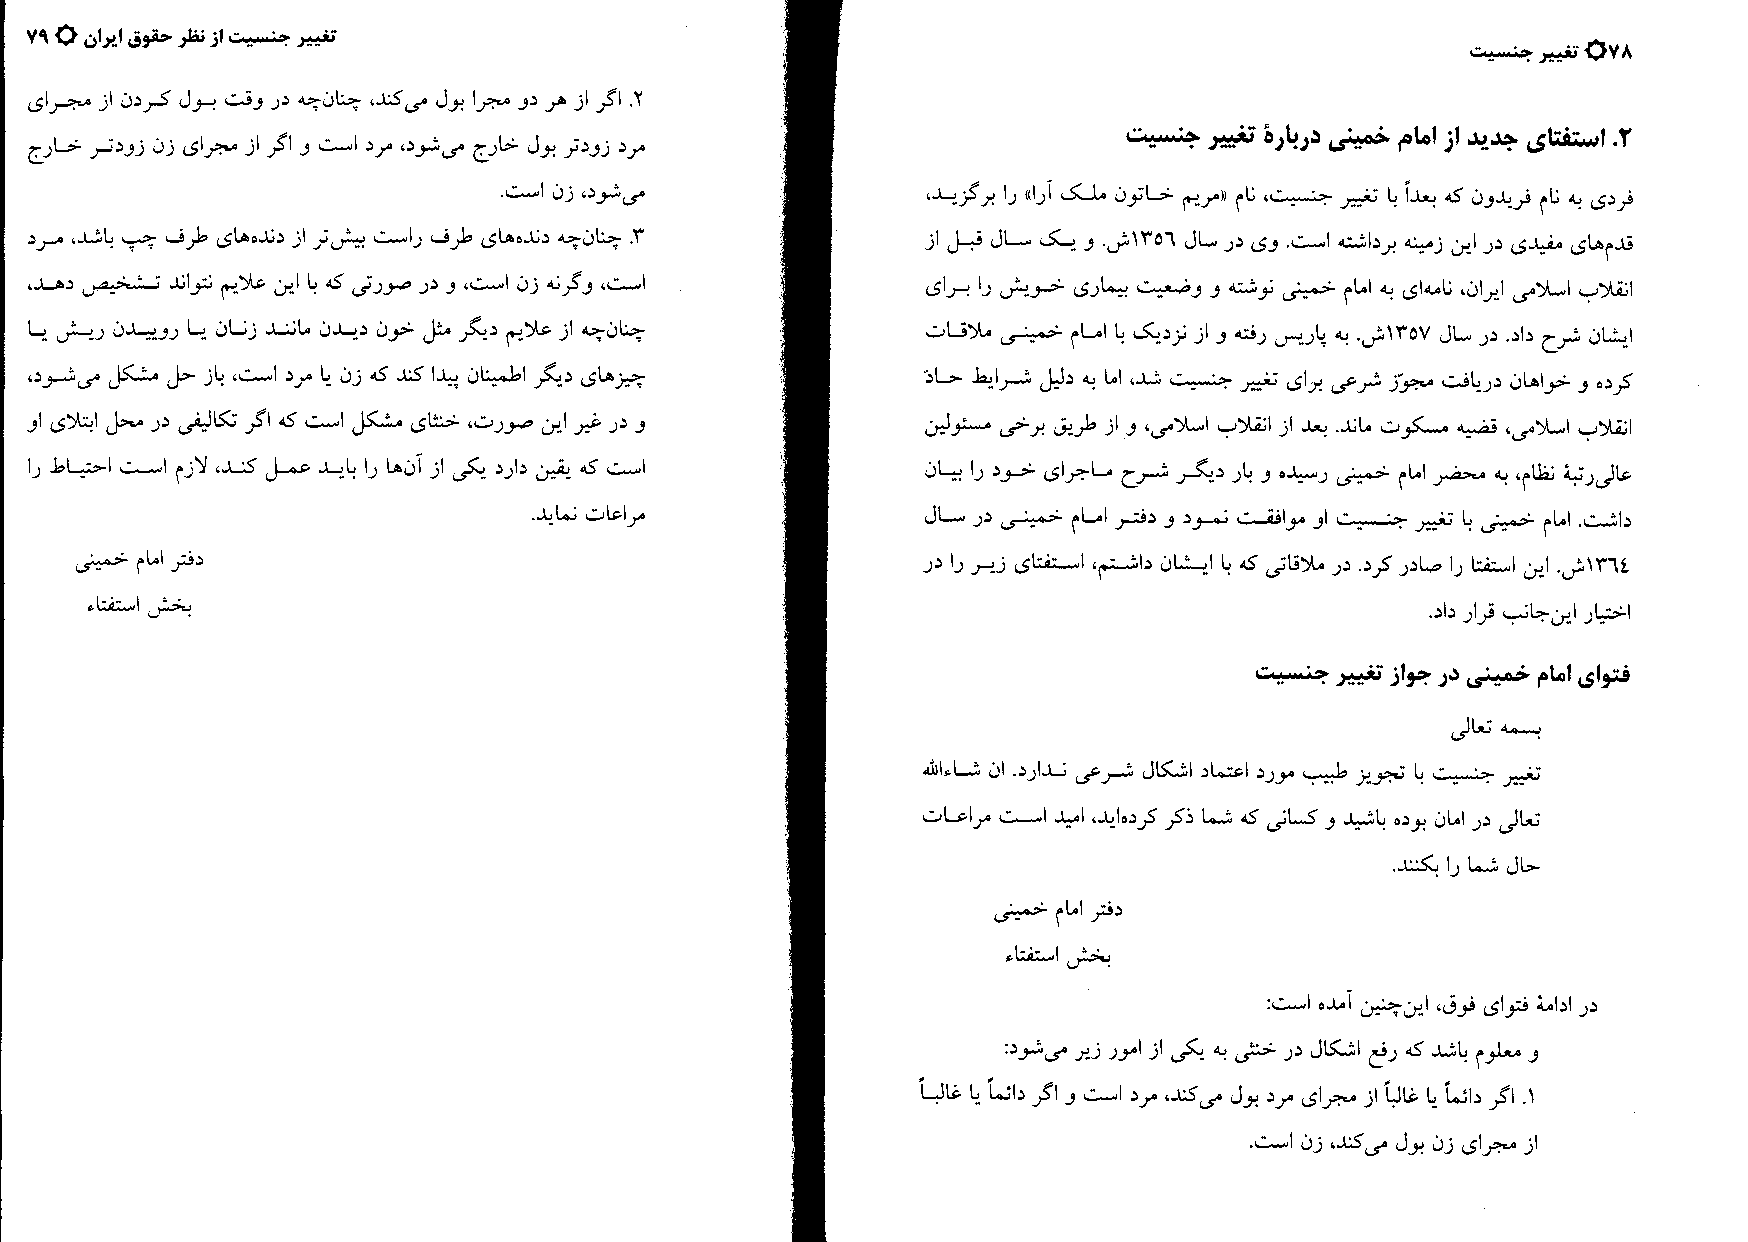 ۷۸ تغییر جنسیت
۲. استفتای جدید از امام خمینی دربارهٔ تغییر جنسیت
فردی به نام فریدون که بعداً با تغییر جنسیت، نام «مریم خاتون ملک آرا» را برگزید،
قدم‌های مفیدی در این زمینه برداشته است. وی در سال ۱۳۵۶ش. و یک سال قبل از
انقلاب اسلامی ایران، نامه‌ای به امام خمینی نوشته و وضعیت بیماری خویش را برای
ایشان شرح داد. در سال ۱۳۵۷ش. به پاریس رفته و از نزدیک با امام خمینی ملاقات
کرده و خواهان دریافت مجوّز شرعی برای تغییر جنسیت شد، اما به دلیل شرایط حادّ
انقلاب اسلامی، قضیه مسکوت ماند. بعد از انقلاب اسلامی، و از طریق برخی مسئولین
عالی‌رتبهٔ نظام، به محضر امام خمینی رسیده و بار دیگر شرح ماجرای خود را بیان
داشت. امام خمینی با تغییر جنسیت او موافقت نمود و دفتر امام خمینی در سال
۱۳۶٤ش. این استفتا را صادر کرد. در ملاقاتی که با ایشان داشتم، استفتای زیر را در
اختیار این‌جانب قرار داد.
فتوای امام خمینی در جواز تغییر جنسیت
بسمه تعالی
تغییر جنسیت با تجویز طبیب مورد اعتماد اشکال شرعی ندارد. ان شاءالله
تعالی در امان بوده باشید و کسانی که شما ذکر کرده‌اید، امید است مراعات
حال شما را بکنند.
دفتر امام خمینی
بخش استفتاء
در ادامهٔ فتوای فوق، این‌چنین آمده است:
و معلوم باشد که رفع اشکال در خنثی به یکی از امور زیر می‌شود:
۱. اگر دائماً یا غالباً از مجرای مرد بول می‌کند، مرد است و اگر دائماً یا غالباً
از مجرای زن بول می‌کند، زن است.
تغییر جنسیت از نظر حقوق ایران ۷۹
۲. اگر از هر دو مجرا بول می‌کند، چنان‌چه در وقت بول کردن از مجرای
مرد زودتر بول خارج می‌شود، مرد است و اگر از مجرای زن زودتر خارج
می‌شود، زن است.
۳. چنان‌چه دنده‌های طرف راست بیش‌تر از دنده‌های طرف چپ باشد، مرد
است، وگرنه زن است، و در صورتی که با این علایم نتواند تشخیص دهد،
چنان‌چه از علایم دیگر مثل خون دیدن مانند زنان یا روییدن ریش یا
چیزهای دیگر اطمینان پیدا کند که زن یا مرد است، باز حل مشکل می‌شود،
و در غیر این صورت، خنثای مشکل است که اگر تکالیفی در محل ابتلای او
است که یقین دارد یکی از آن‌ها را باید عمل کند، لازم است احتیاط را
مراعات نماید.
دفتر امام خمینی
بخش استفتاء